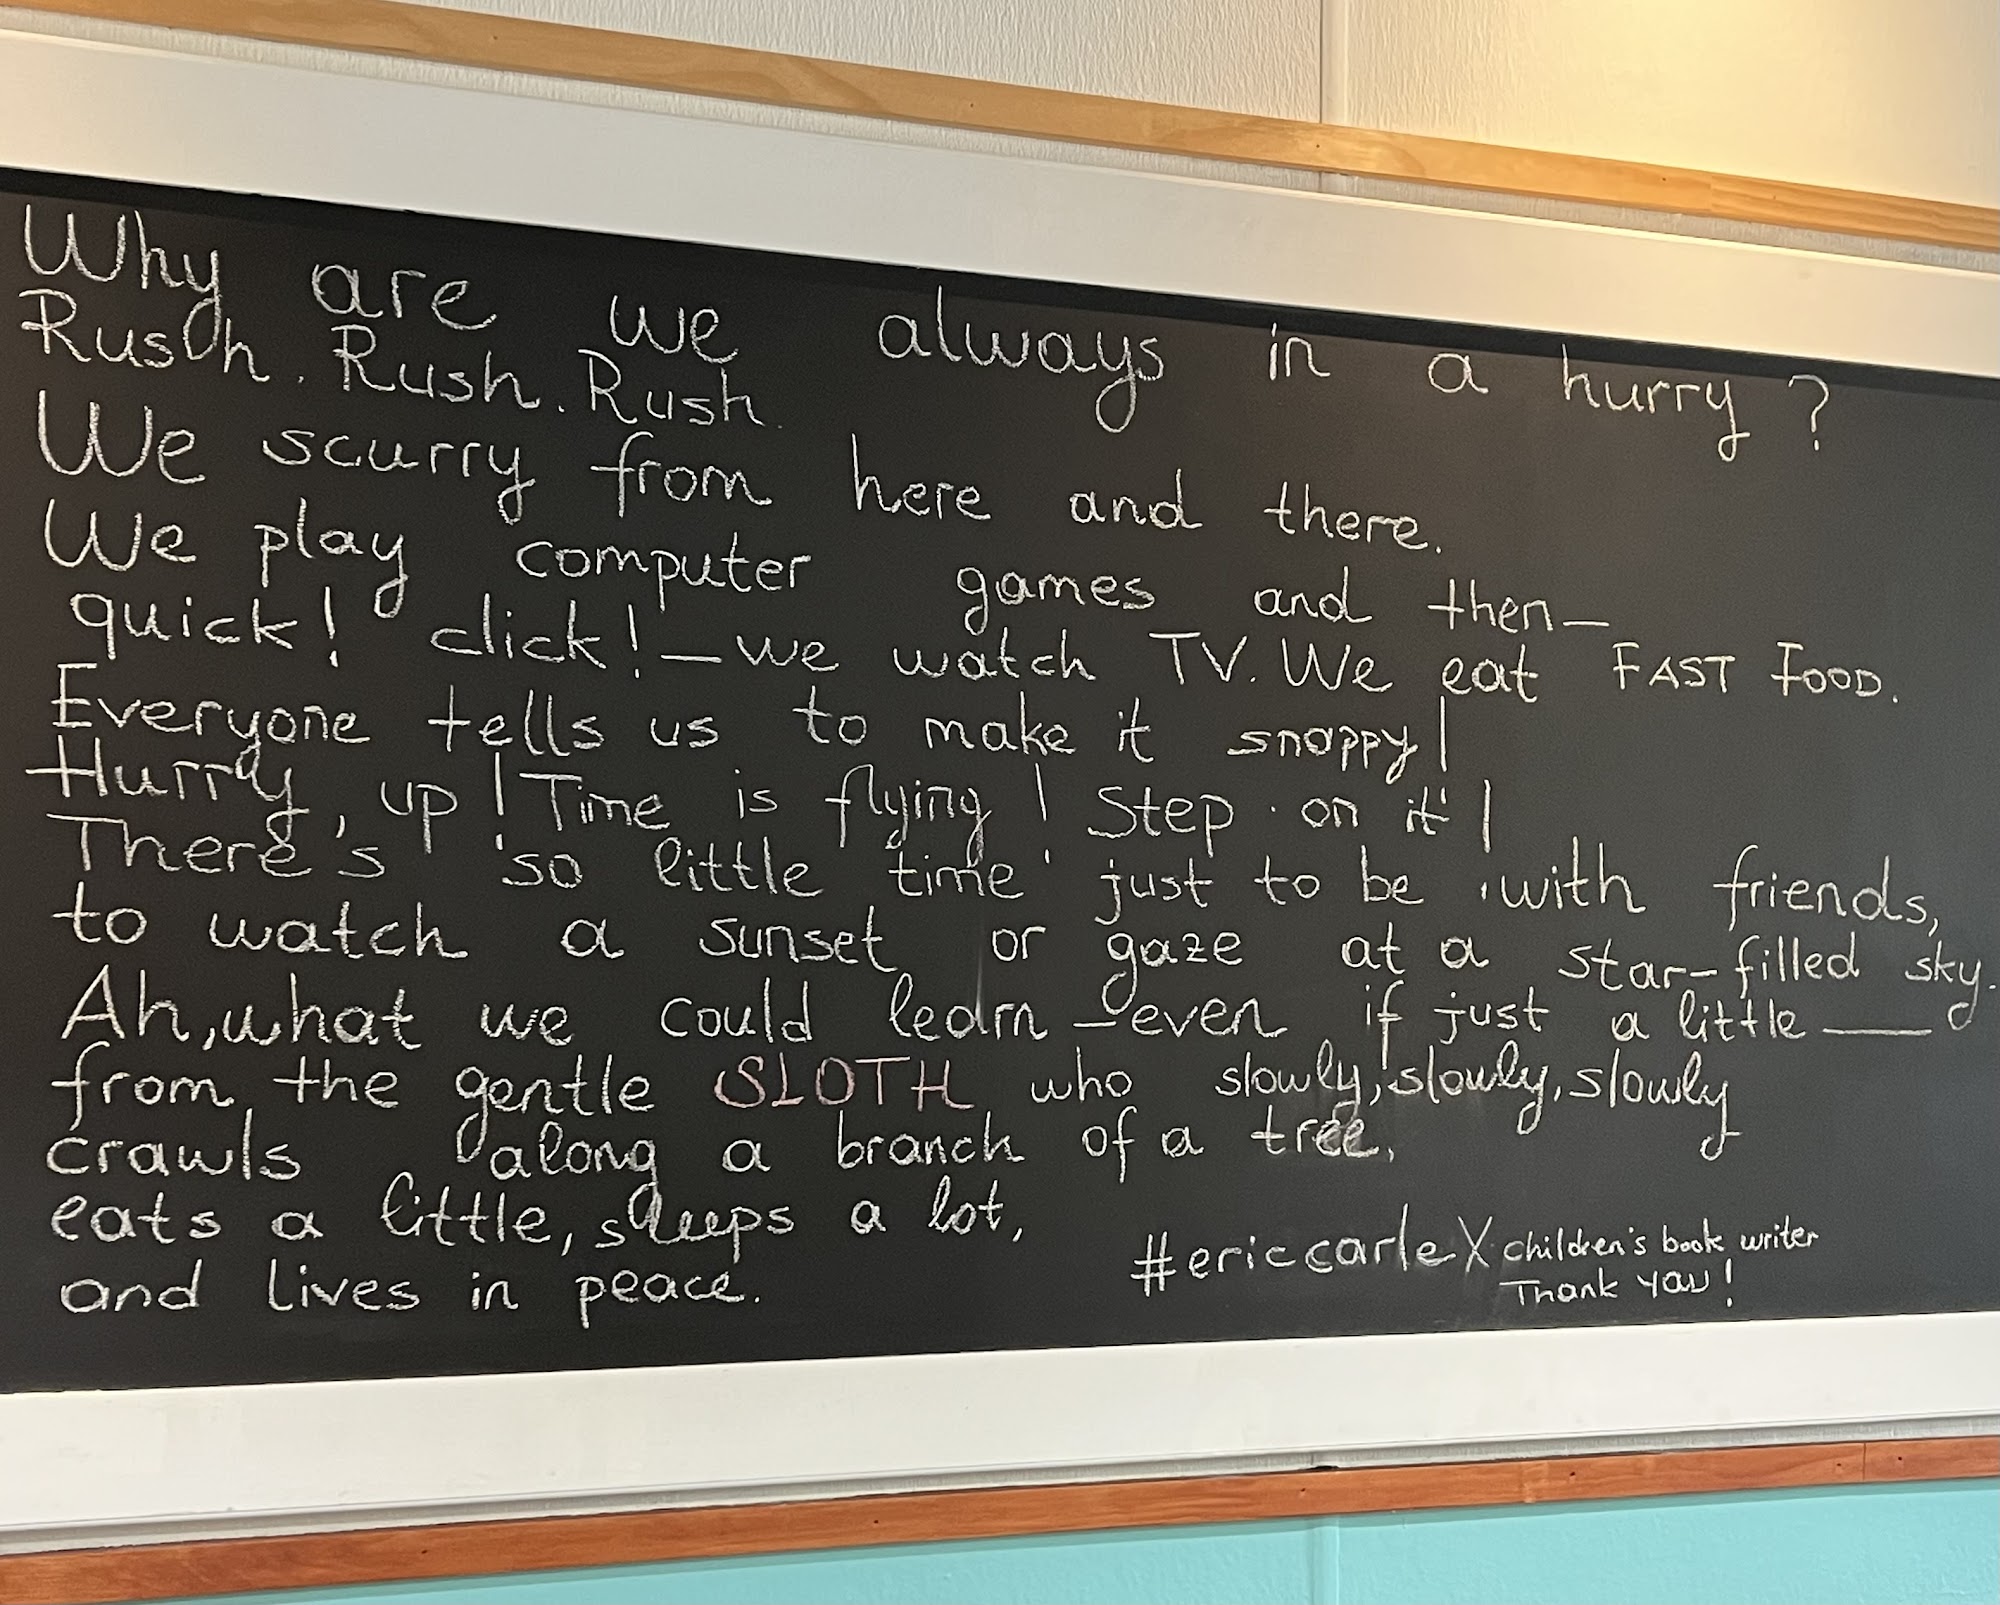 Why are we always in a hurry?
Rush. Rush. Rush.
We scurry from here and there.
We play computer games and then—
quick! click!—we watch TV. We eat FAST FOOD.
Everyone tells us to make it snappy!
Hurry, up! Time is flying! Step on it!
There's so little time just to be with friends,
to watch a sunset or gaze at a star-filled sky.
Ah, what we could learn—even if just a little—
from the gentle SLOTH who slowly, slowly, slowly
crawls along a branch of a tree,
eats a little, sleeps a lot,
and lives in peace.
#ericcarle X children's book writer
Thank you!